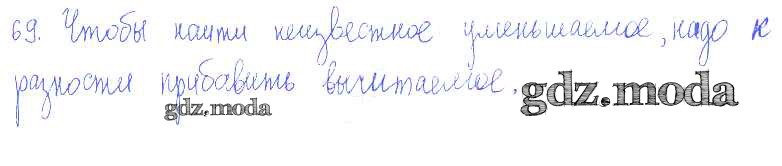 69. Чтобы найти неизвестное уменьшаемое, надо к
разности прибавить вычитаемое.
gdz.moda
gdz.moda